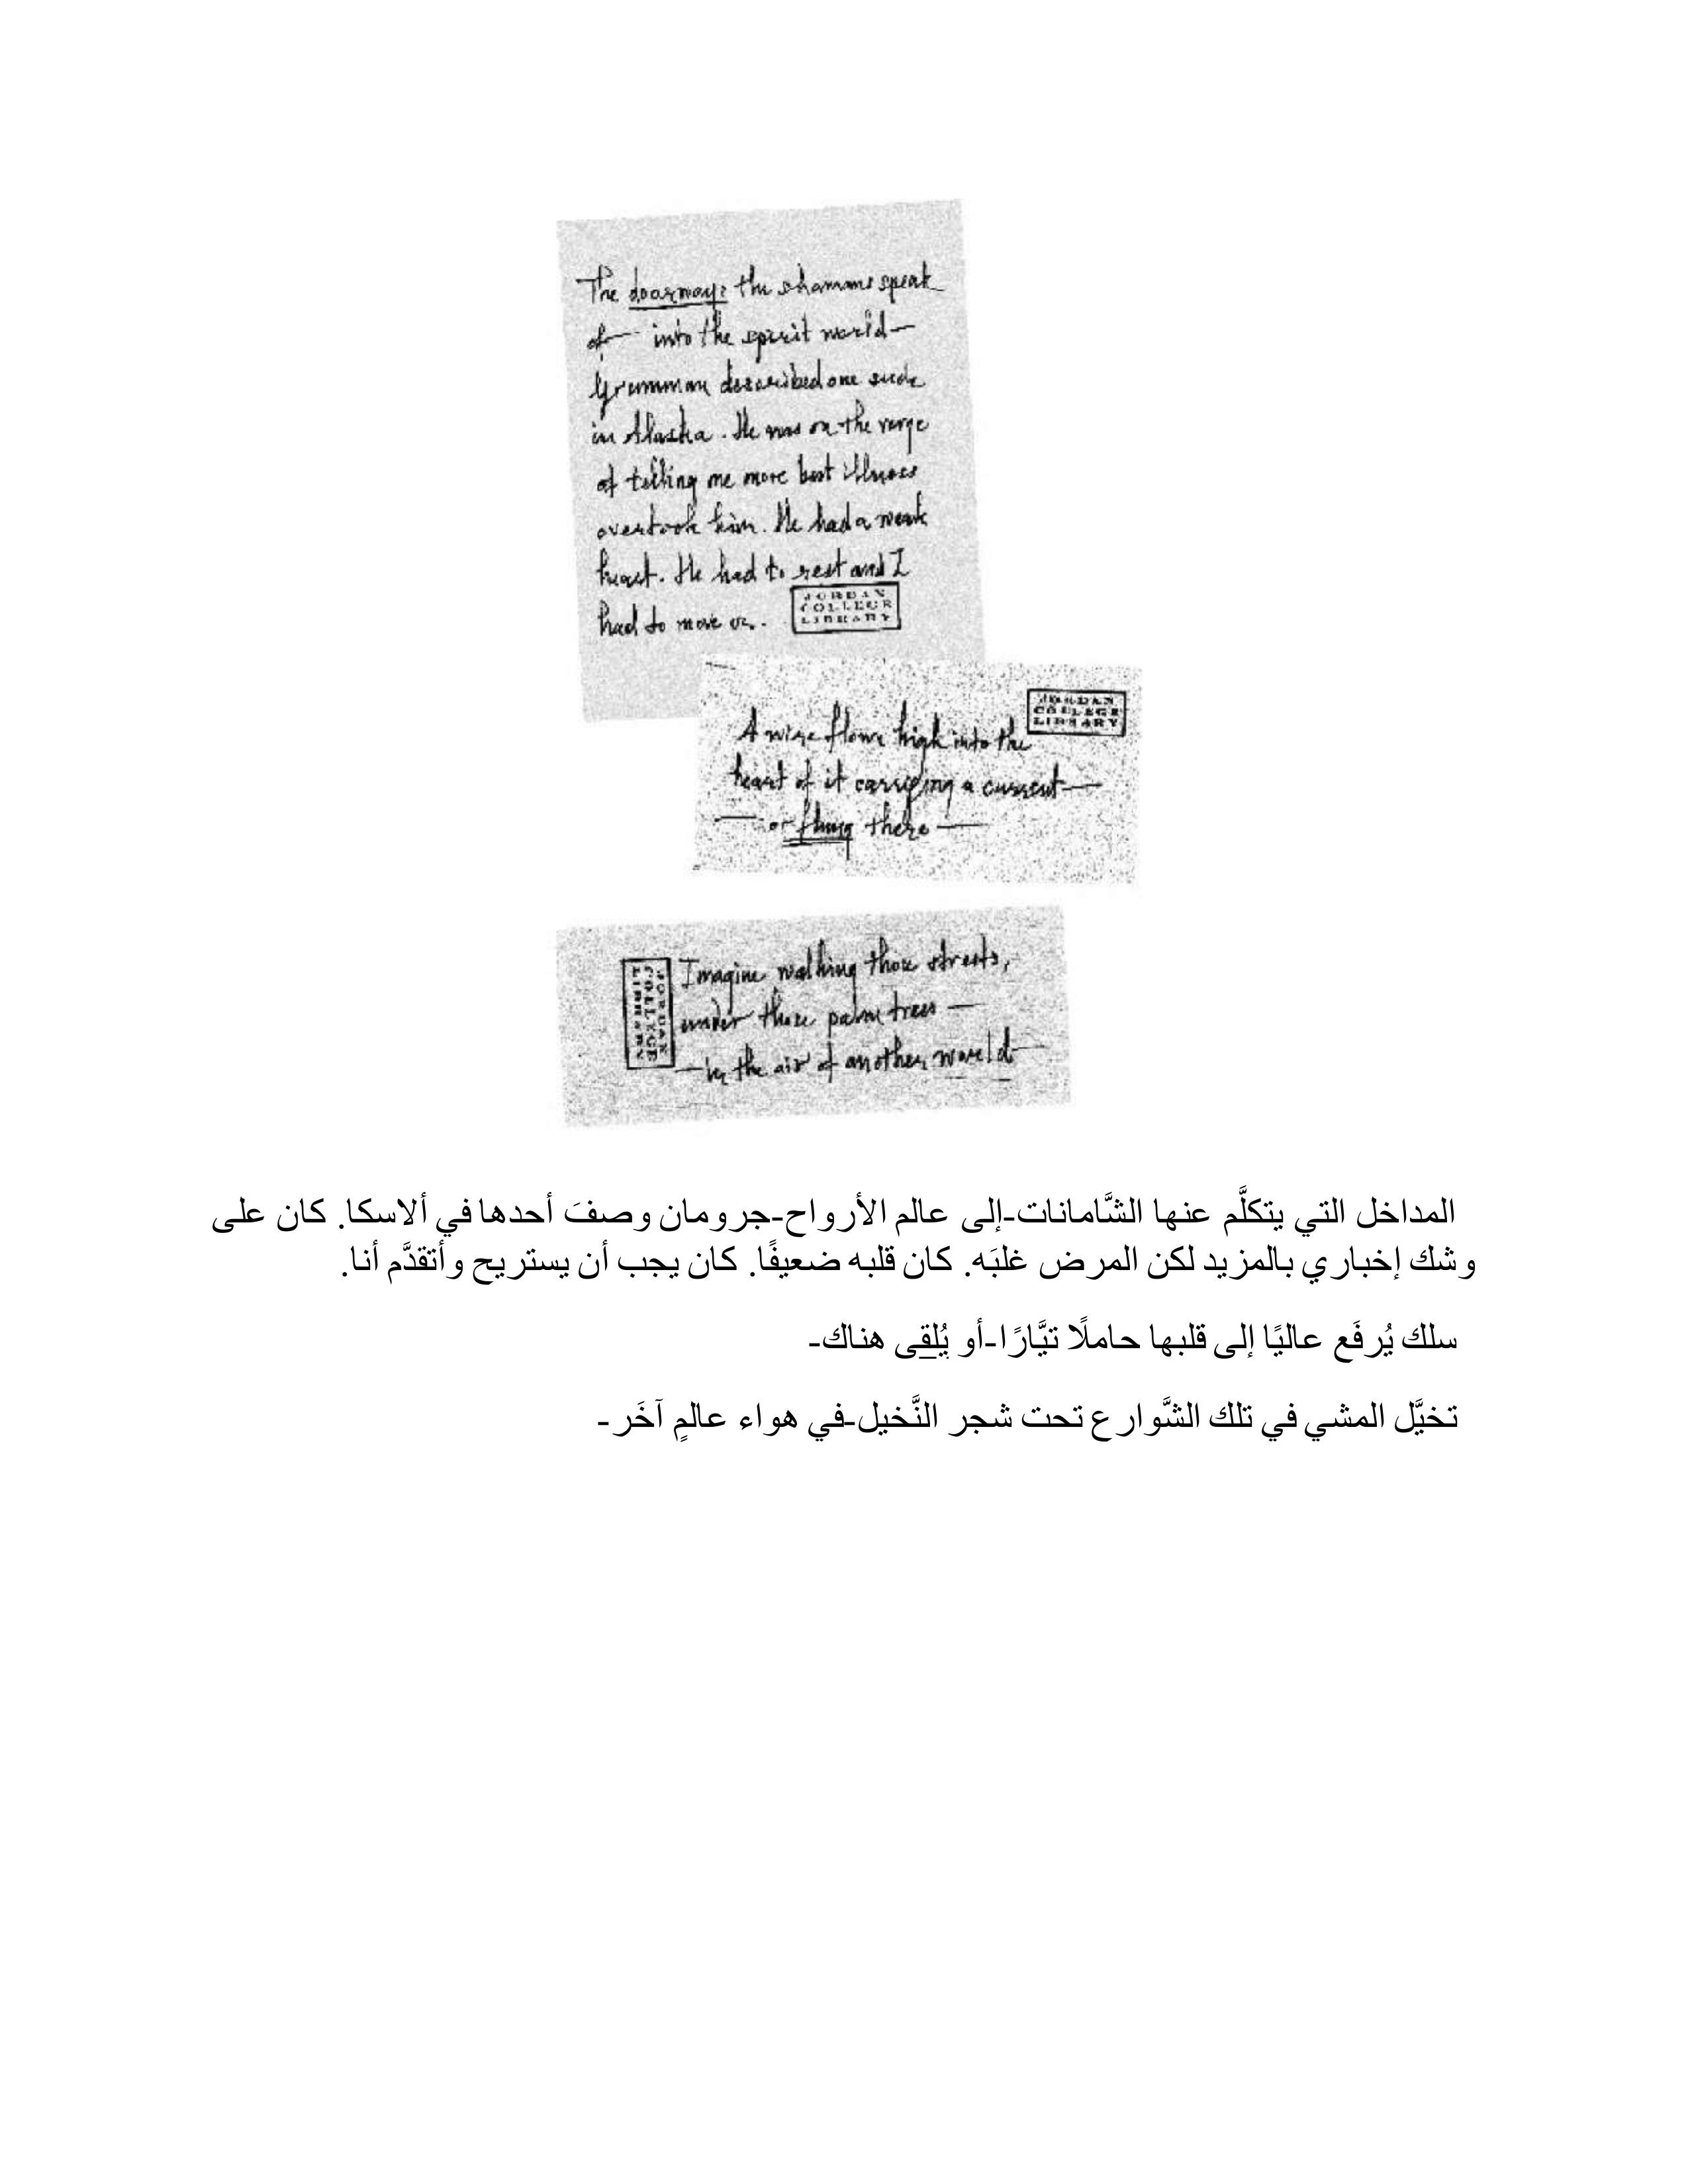 The doorways the shamans speak
of — into the spirit world —
Grumman described one such
in Alaska. He was on the verge
of telling me more but illness
overtook him. He had a weak
heart. He had to rest and I
had to move on.
JORDAN
COLLEGE
LIBRARY
JORDAN
COLLEGE
LIBRARY
A wire flown high into the
heart of it carrying a current —
— or flung there —
JORDAN
COLLEGE
LIBRARY
Imagine walking those streets,
under those palm trees —
— in the air of another world —
المداخل التي يتكلَّم عنها الشَّامانات-إلى عالم الأرواح-جرومان وصفَ أحدها في ألاسكا. كان على
وشك إخباري بالمزيد لكن المرض غلبَه. كان قلبه ضعيفًا. كان يجب أن يستريح وأتقدَّم أنا.
سلك يُرفَع عاليًا إلى قلبها حاملًا تيَّارًا-أو يُلقِى هناك-
تخيَّل المشي في تلك الشَّوارع تحت شجر النَّخيل-في هواء عالمٍ آخَر-